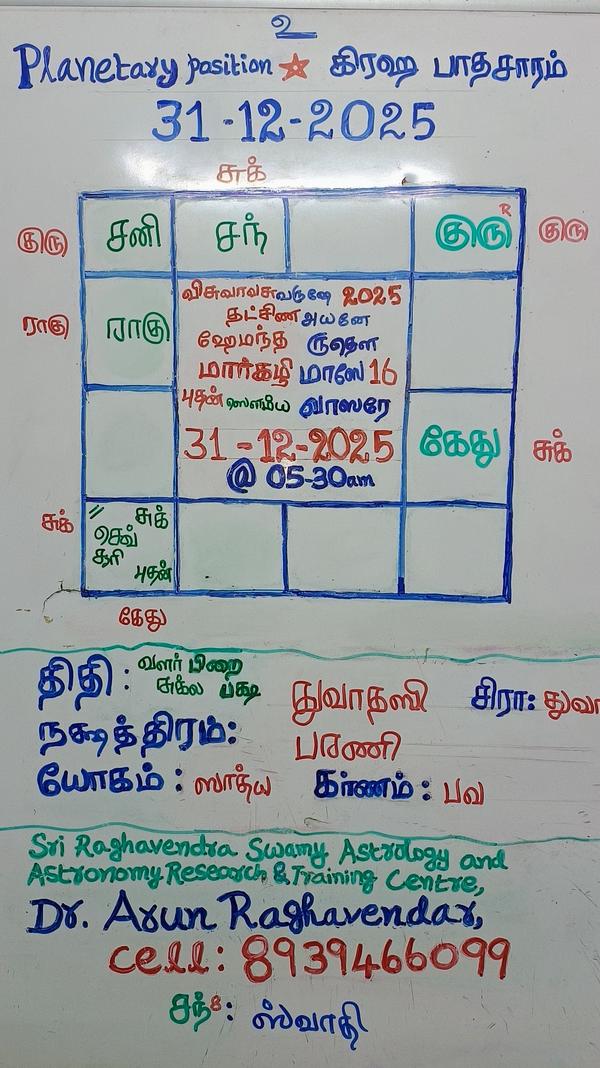 உ
Planetary position ☆ கிரஹ பாதசாரம்
31-12-2025
சுக்
குரு சனி சந் குரு R குரு
ராகு ராகு
விசுவாவசு வருஷே 2025
தட்சிண அயனே
ஹேமந்த ருதௌ
மார்கழி மாஸே 16
புதன் ஸௌம்ய வாஸரே
31-12-2025
@ 05-30am
கேது சுக்
சுக் // சுக்
செவ்
சூரி
புதன்
கேது
திதி: வளர் பிறை
சுக்ல பக்ஷ துவாதஸி சிரா: துவா
நக்ஷத்திரம்: பரணி
யோகம்: ஸாத்ய கர்ணம்: பவ
Sri Raghavendra Swamy Astrology and
Astronomy Research & Training Centre,
Dr. Arun Raghavendar,
cell: 8939466099
சந் 8: ஸ்வாதி